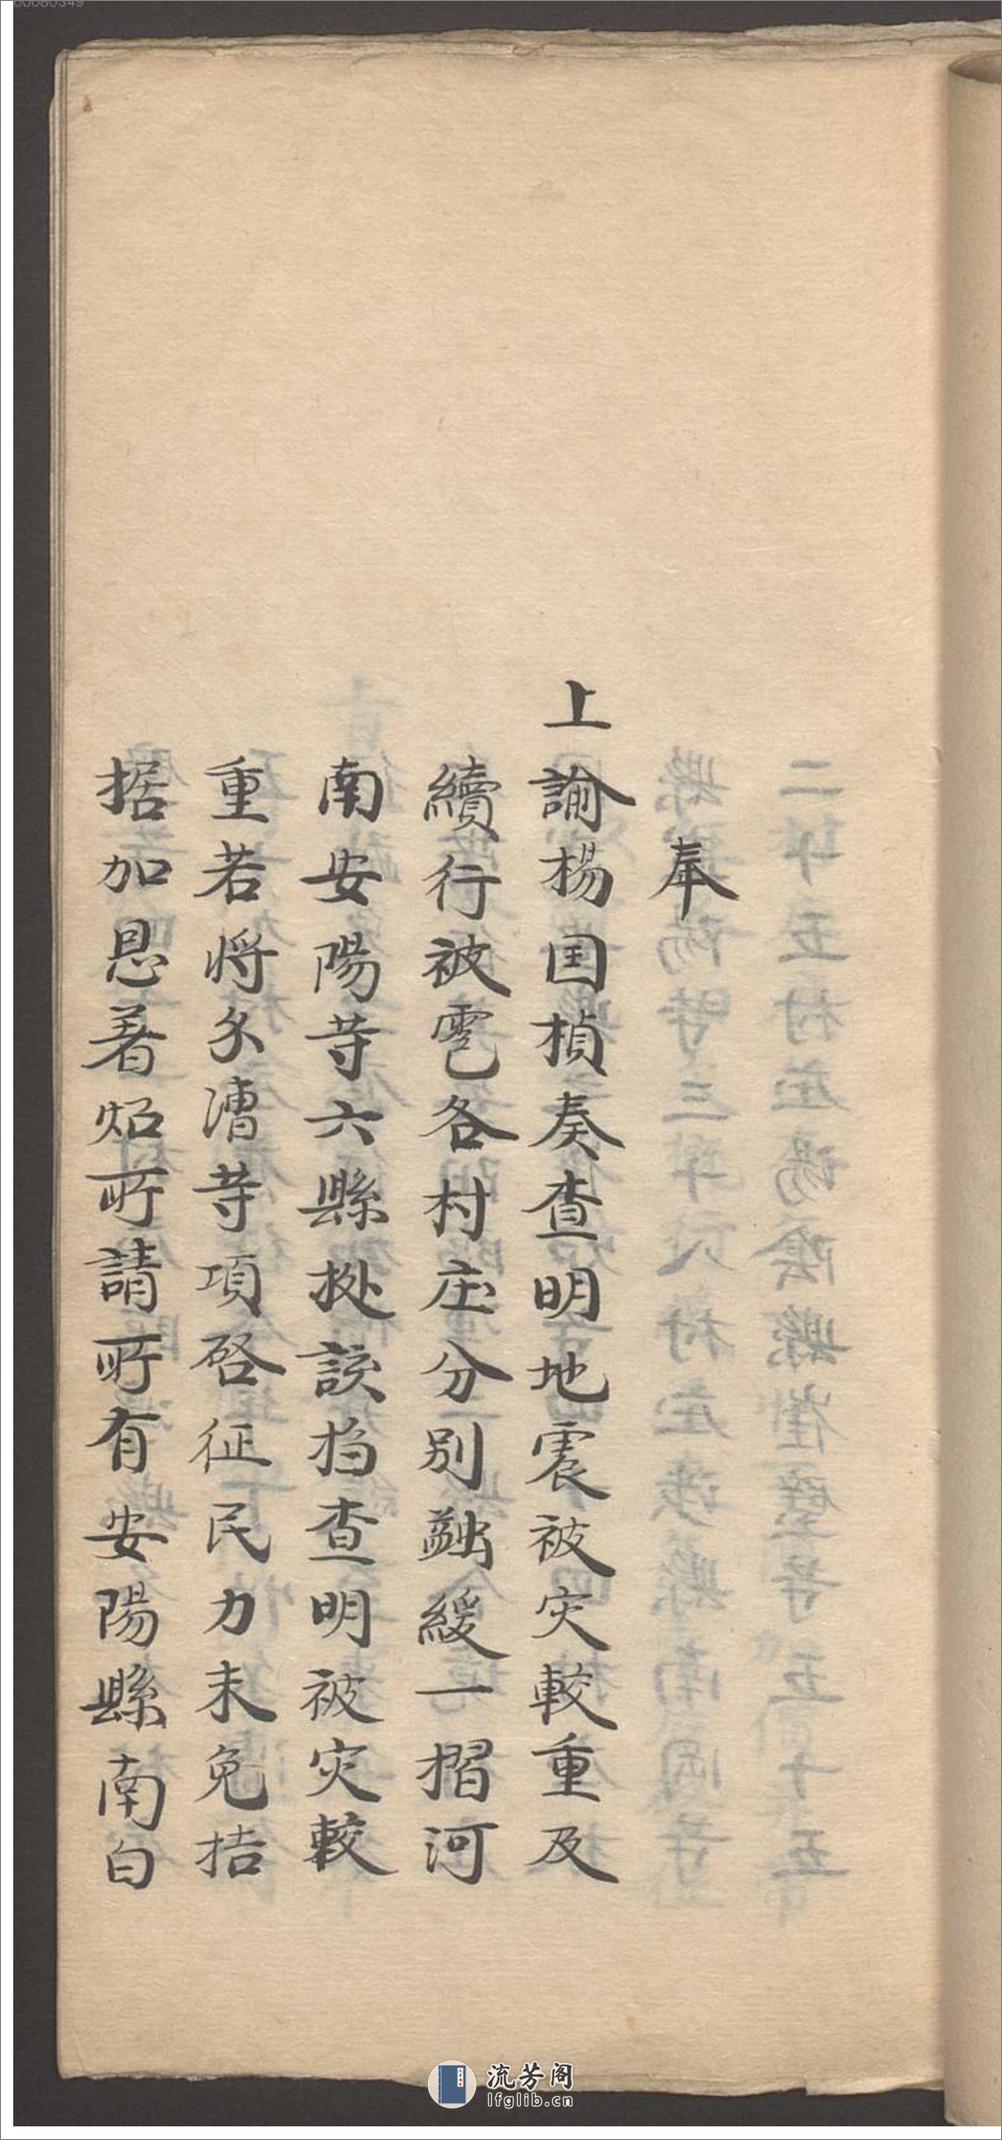 奉
上諭楊囯楨奏查明地震被灾較重及
續行被雹各村庄分別蠲緩一摺河
南安陽等六縣拠該抚查明被灾較
重若將欠漕等項啓征民力未免拮
据加恩著炤所請所有安陽縣南白
流芳阁
lfglib.cn